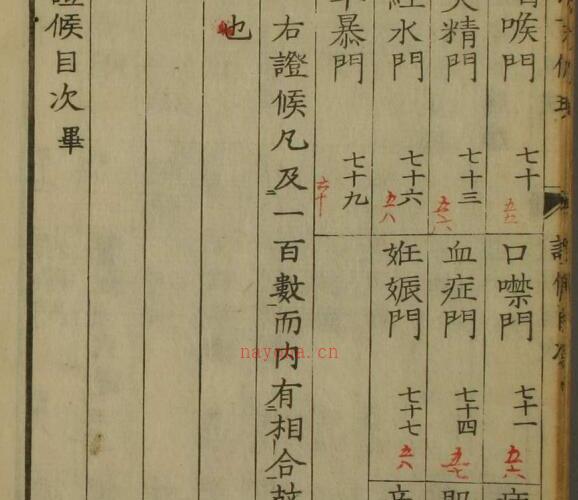 喉門 七十
口噤門 七十一 五六
精門 七十三 五六
血症門 七十四 五七
水門 七十六 五八
姙娠門 七十七 五八
暴門 七十九 六十
右證候凡及一百數而內有相合
也
候目次畢
nayona.cn